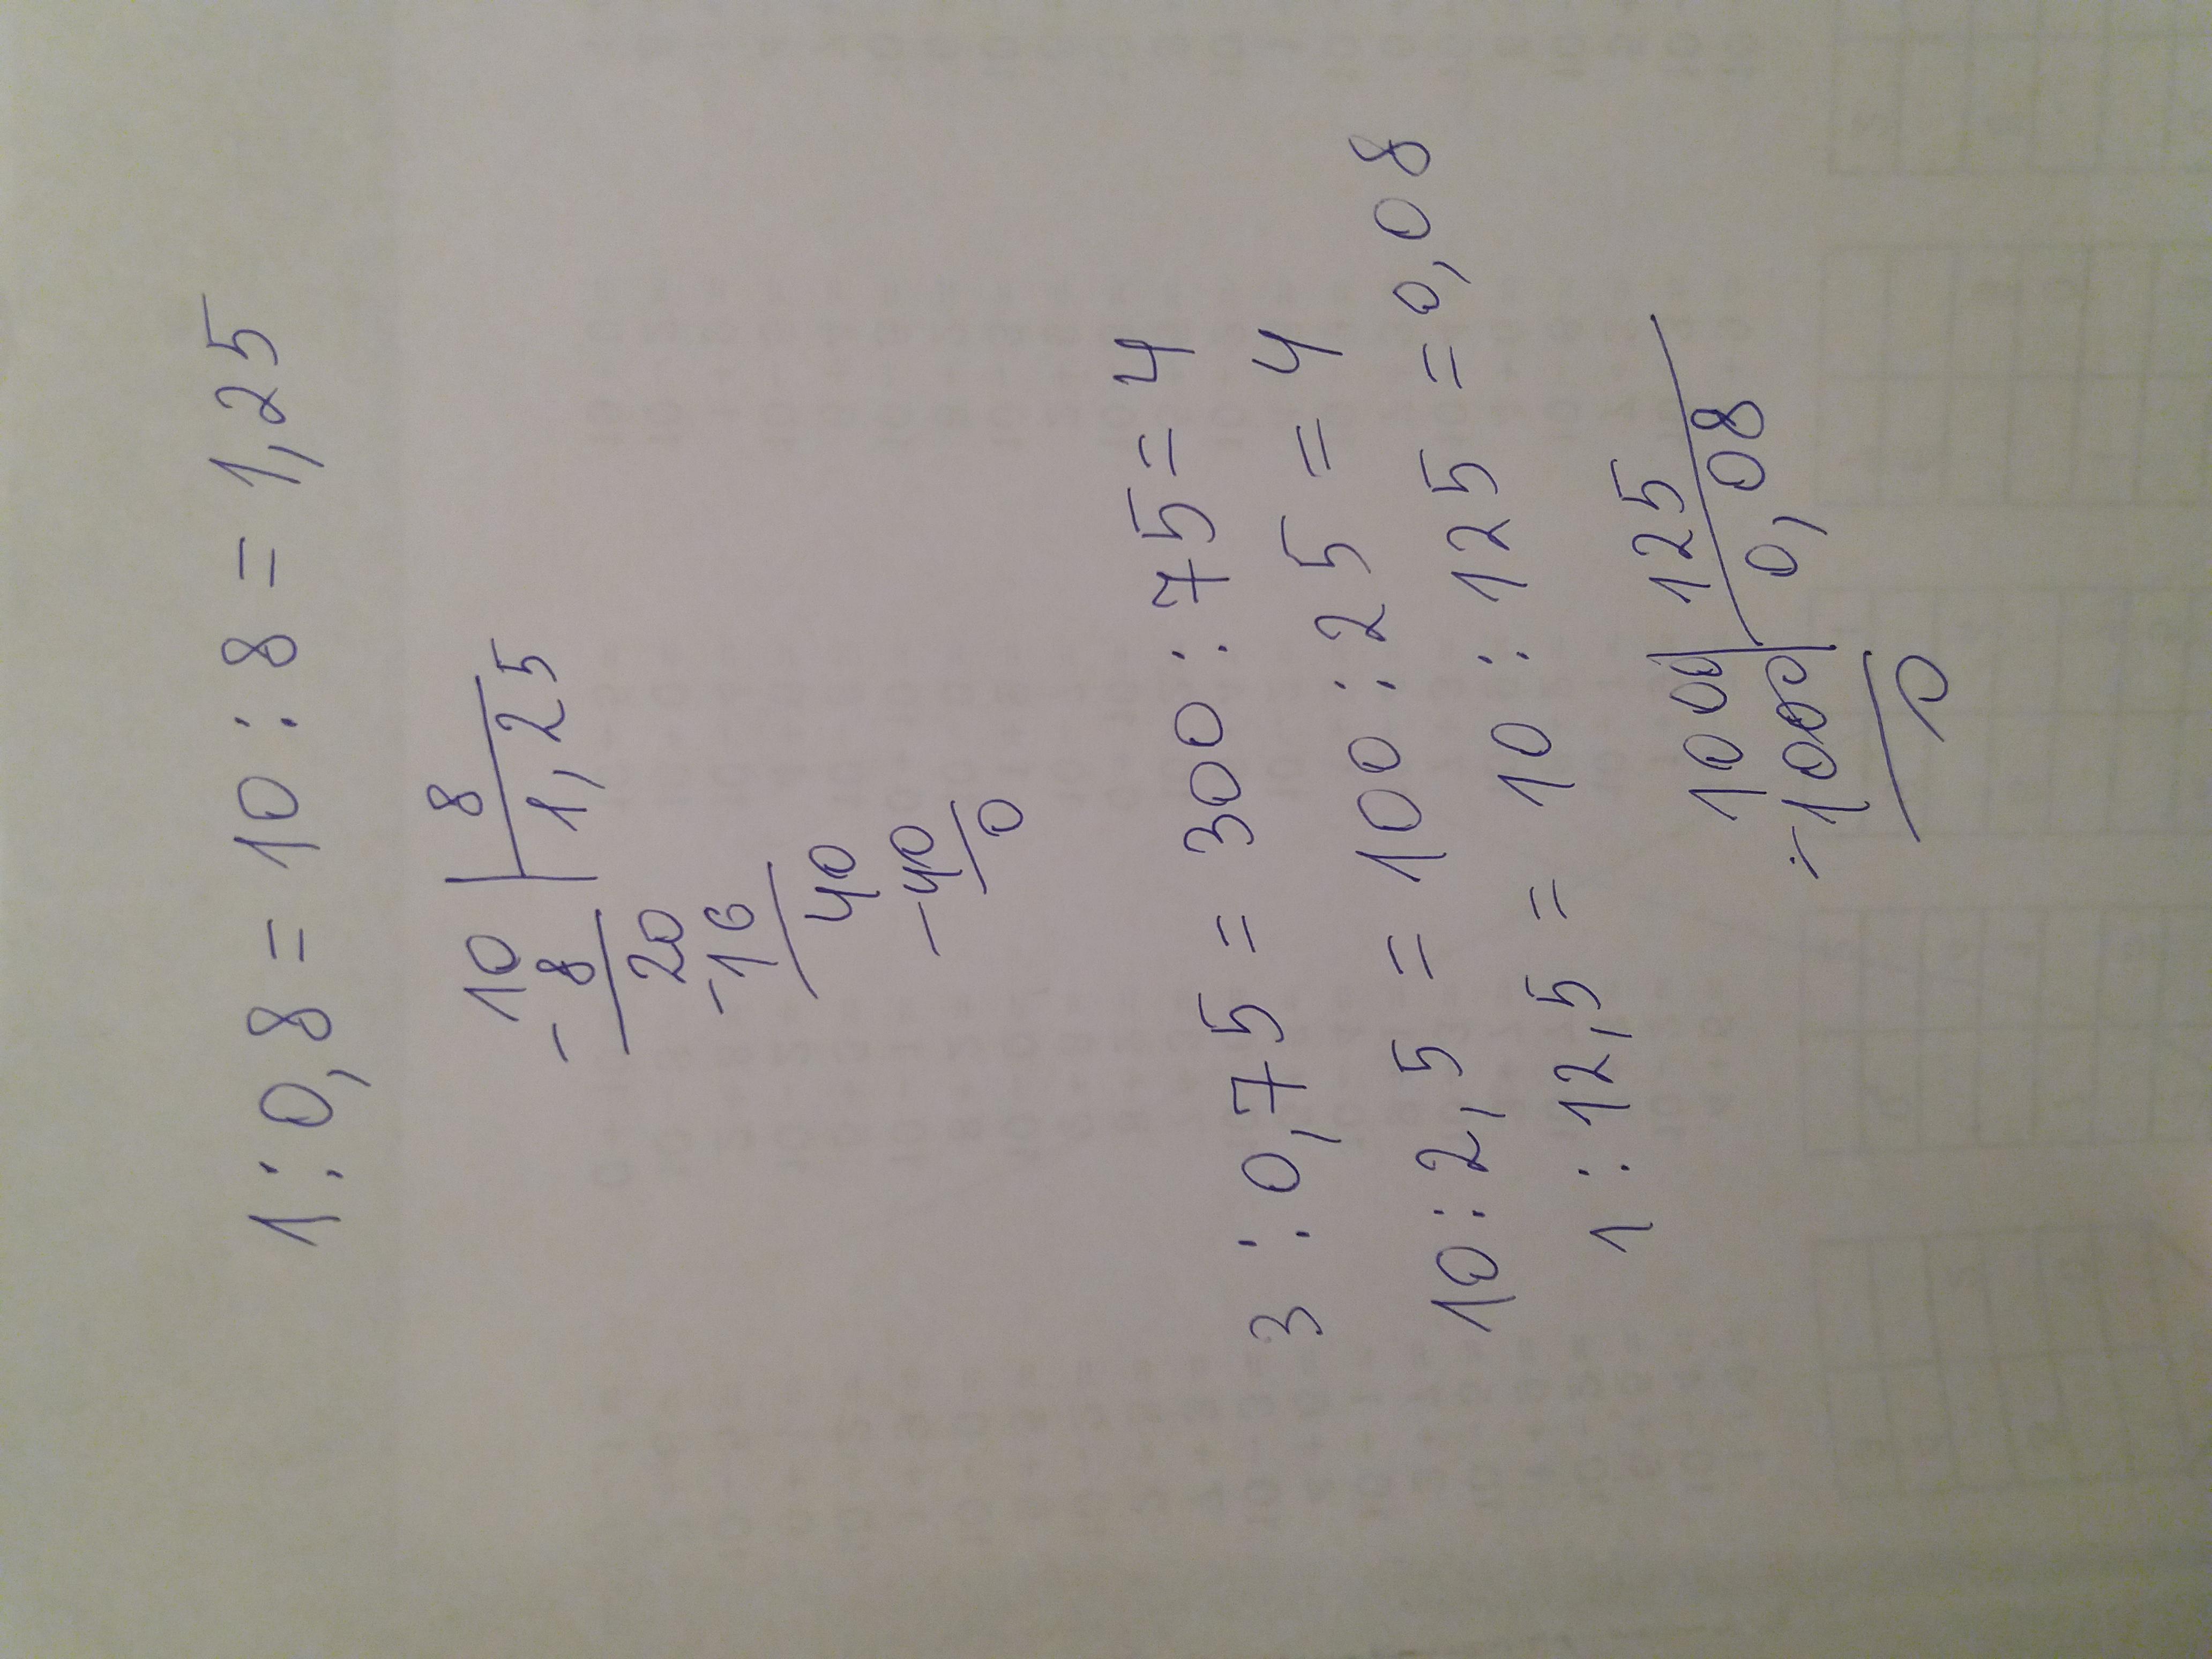 1 : 0,8 = 10 : 8 = 1,25
10 | 8
- 8 | 1,25
20
-16
40
-40
0
3 : 0,75 = 300 : 75 = 4
10 : 2,5 = 100 : 25 = 4
1 : 12,5 = 10 : 125 = 0,08
1000 | 125
-1000 | 0,08
0